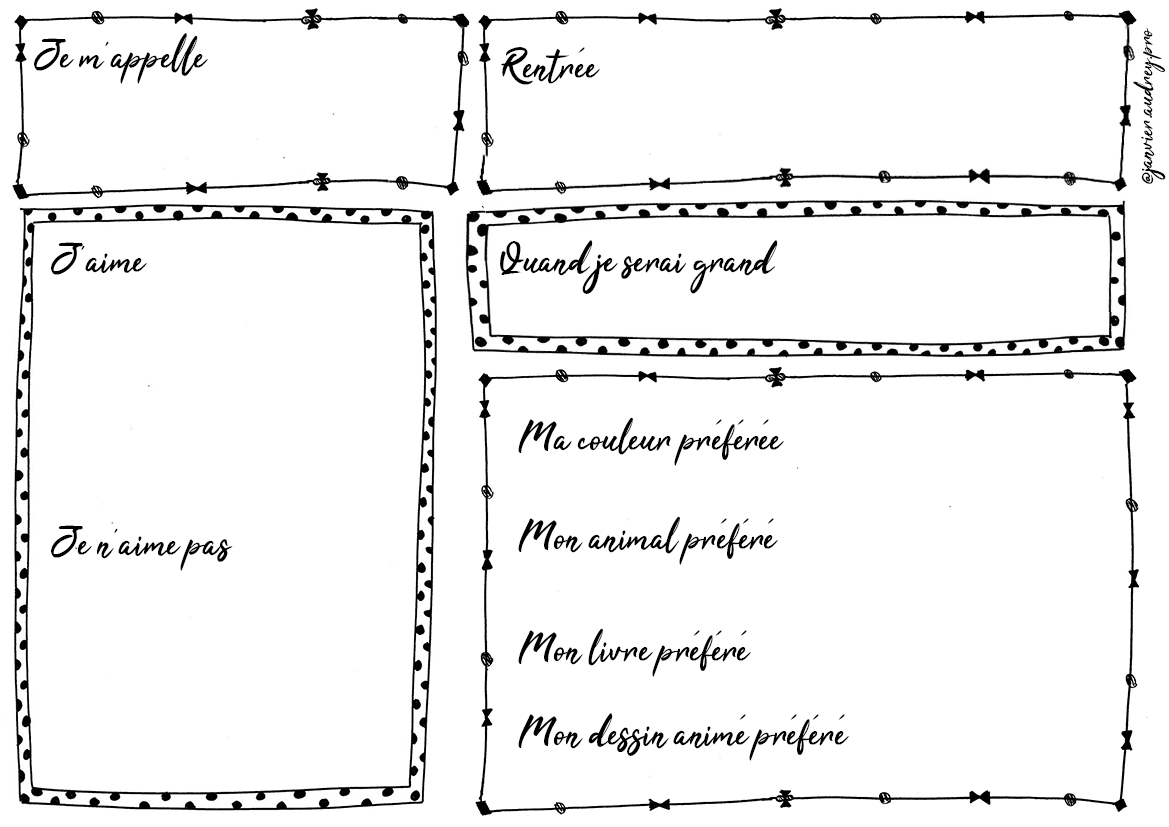 Je m'appelle
Rentrée
@janvier.audrey.pro
J'aime
Quand je serai grand
Ma couleur préférée
Mon animal préféré
Je n'aime pas
Mon livre préféré
Mon dessin animé préféré